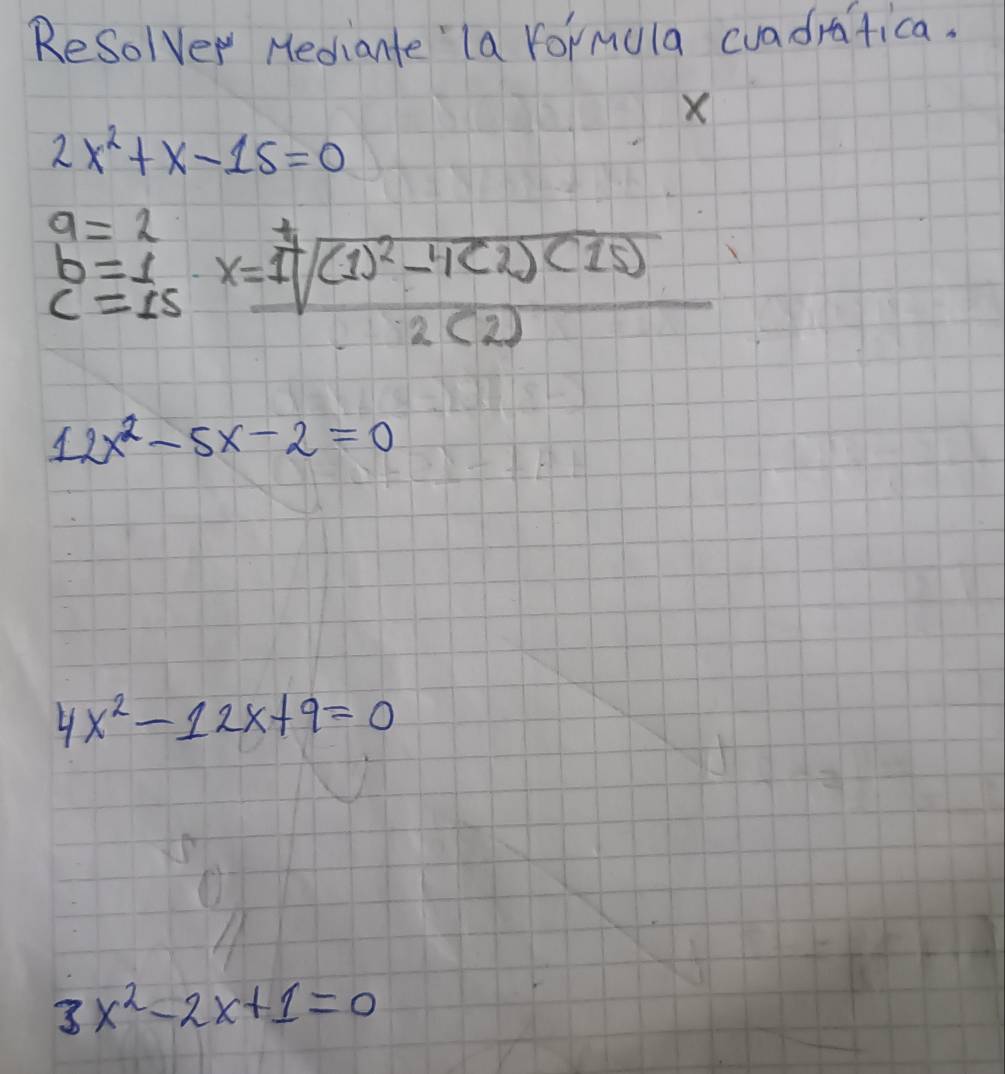 Resolver Mediante la fórmula cuadrática.
x
2x²+x-15=0
a=2
b=1
c=15
x=1±√(1)²-4(2)(15)
2(2)
12x²-5x-2=0
4x²-12x+9=0
3x²-2x+1=0